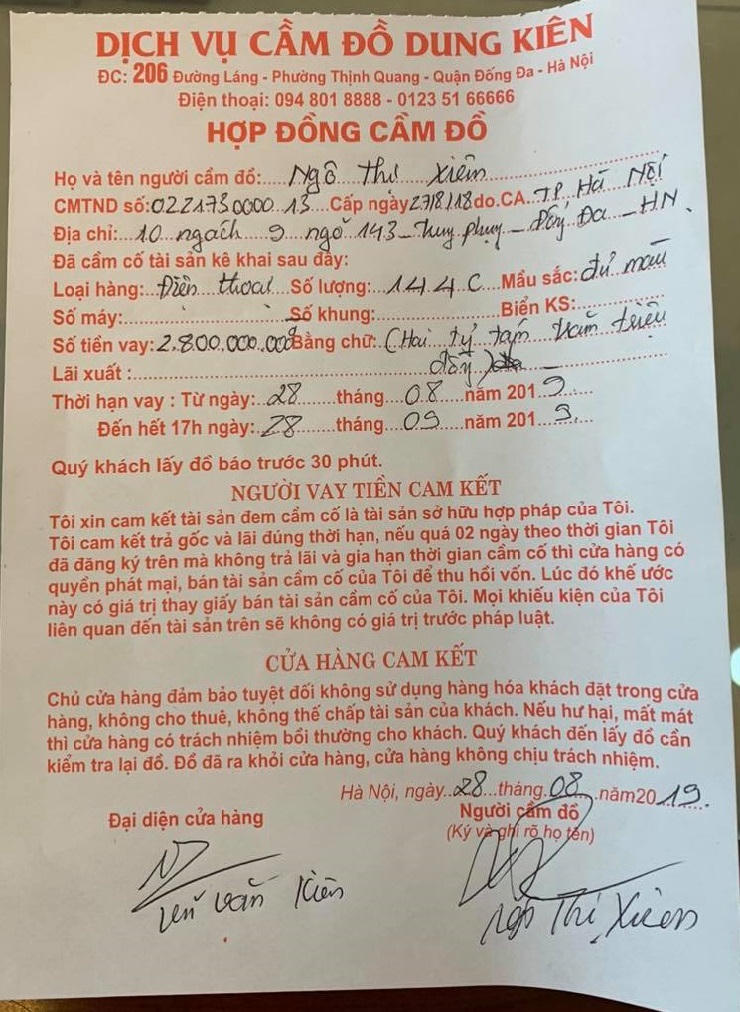 DỊCH VỤ CẦM ĐỒ DUNG KIÊN
ĐC: 206 Đường Láng - Phường Thịnh Quang - Quận Đống Đa - Hà Nội
Điện thoại: 094 801 8888 - 0123 51 66666
HỢP ĐỒNG CẦM ĐỒ
Họ và tên người cầm đồ:....Ngô Thị Xiêm
CMTND số:022173000013...Cấp ngày27/8/18do.CA..T.P, Hà Nội
Địa chỉ:...10 ngách 9 ngõ 143 - - Đống Đa - HN.
Đã cầm cố tài sản kê khai sau đây:
Loại hàng:..Điện thoại..Số lượng:..144 C....Mầu sắc: đủ màu
Số máy:..............Số khung:..............Biển KS:..............
Số tiền vay:2.800.000.000đBằng chữ:.(Hai tỷ tám trăm triệu
Lãi xuất :.............. đồng)
Thời hạn vay : Từ ngày:..28.......tháng....08......năm 201.9.....
Đến hết 17h ngày:..28.......tháng...09......năm 201..9....
Quý khách lấy đồ báo trước 30 phút.
NGƯỜI VAY TIỀN CAM KẾT
Tôi xin cam kết tài sản đem cầm cố là tài sản sở hữu hợp pháp của Tôi.
Tôi cam kết trả gốc và lãi đúng thời hạn, nếu quá 02 ngày theo thời gian Tôi
đã đăng ký trên mà không trả lãi và gia hạn thời gian cầm cố thì cửa hàng có
quyền phát mại, bán tài sản cầm cố của Tôi để thu hồi vốn. Lúc đó khế ước
này có giá trị thay giấy bán tài sản cầm cố của Tôi. Mọi khiếu kiện của Tôi
liên quan đến tài sản trên sẽ không có giá trị trước pháp luật.
CỬA HÀNG CAM KẾT
Chủ cửa hàng đảm bảo tuyệt đối không sử dụng hàng hóa khách đặt trong cửa
hàng, không cho thuê, không thế chấp tài sản của khách. Nếu hư hại, mất mát
thì cửa hàng có trách nhiệm bồi thường cho khách. Quý khách đến lấy đồ cần
kiểm tra lại đồ. Đồ đã ra khỏi cửa hàng, cửa hàng không chịu trách nhiệm.
Hà Nội, ngày..28...tháng.08...năm2019.
Đại diện cửa hàng Người cầm đồ
(Ký và ghi rõ họ tên)
Văn Kiên Ngô Thị Xiêm